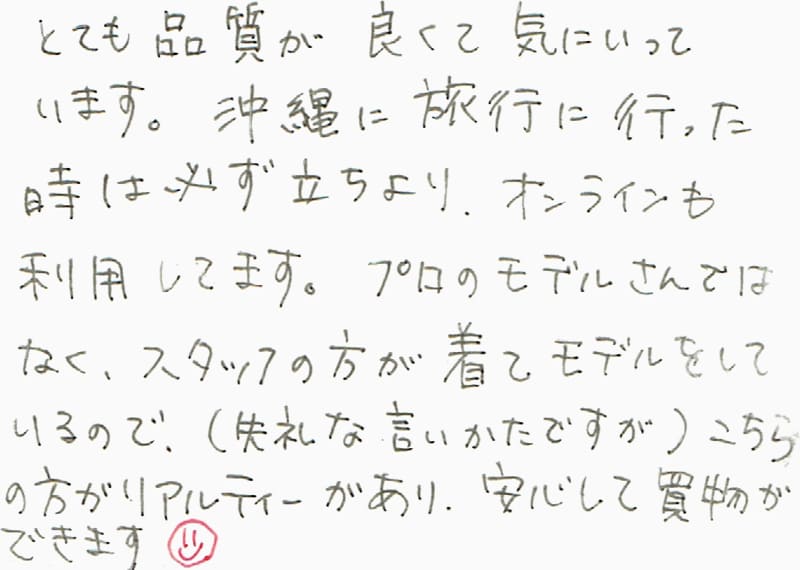 とても品質が良くて気にいって
います。沖縄に旅行に行った
時は必ず立ちより、オンラインも
利用してます。プロのモデルさんでは
なく、スタッフの方が着てモデルをして
いるので、(失礼な言いかたですが)こちら
の方がリアルティーがあり、安心して買物が
できます